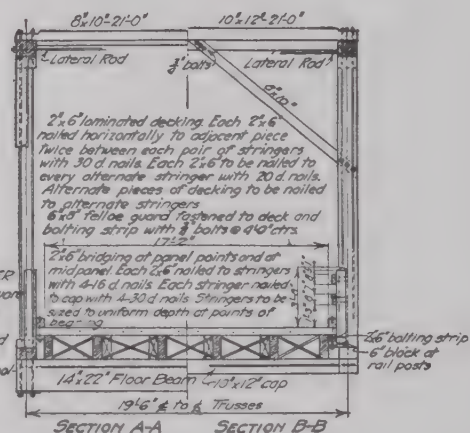 8"x10"-21'-0"
10"x12"-21'-0"
Lateral Rod
bolts
Lateral Rod
2"x6" laminated decking. Each 2"x6"
nailed horizontally to adjacent piece
twice between each pair of stringers
with 30 d. nails. Each 2"x6" to be nailed to
every alternate stringer with 20 d. nails.
Alternate pieces of decking to be nailed
to alternate stringers
6"x8" felloe guard fastened to deck and
bolting strip with bolts @ 4'-0" ctrs.
17'-2"
2"x6" bridging at panel points and at
midpanel. Each 2"x6" nailed to stringers
with 4-16 d. nails. Each stringer nailed
to cap with 4-30 d. nails. Stringers to be
sized to uniform depth at points of
bearing
2"x6" bolting strip
6" block at
rail posts
14"x22" Floor Beam
10"x12" cap
19'-6" ℄ to ℄ Trusses
SECTION A-A
SECTION B-B